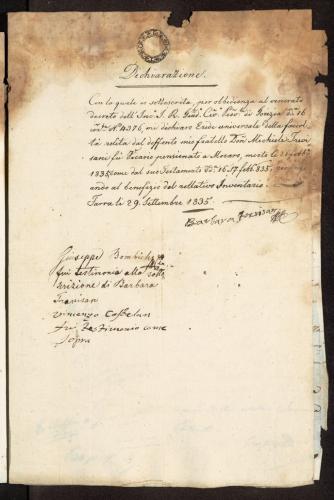 Dichiarazione.
Con la quale io sottoscritta, per obbidienza al venerato
decreto dell' Inc. I. R. Giud. Civ. di Gorizia 16
cor. N. 4376, mi dichiaro Erede universale della facol-
tà relita dal deffonto mio fratello Don Michiele Trevi-
sani fu Vicario pensionato a Moraro, morto li
1835 come dal suo Testamento 16. 17 febb. 835,
ando al benefizio del relativo Inventario.
Farra li 29. Settembre 1835.
Barbara Trevisan
Giuseppe Bombich
fui testimonio alla sotto
scrizione di Barbara
Travisan
Vincenzo Castelan
fui Testimonio come
Sopra